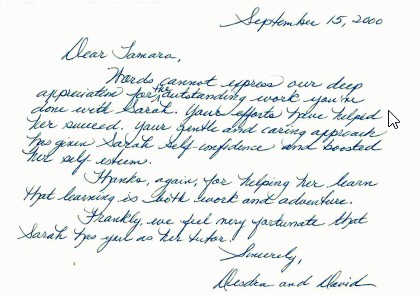 September 15, 2000
Dear Tamara,
Words cannot express our deep
appreciation for the outstanding work you've
done with Sarah. Your efforts have helped
her succeed. Your gentle and caring approach
has given Sarah self confidence and boosted
her self esteem.
Thanks, again, for helping her learn
that learning is both work and adventure.
Frankly, we feel very fortunate that
Sarah has you as her tutor.
Sincerely,
Desdra and David